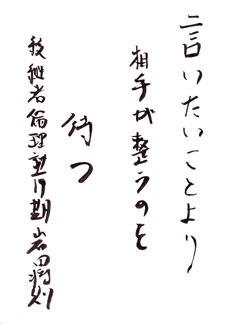 言いたいことより
相手が整うのを
待つ
後継者倫理塾17期 岩田将則